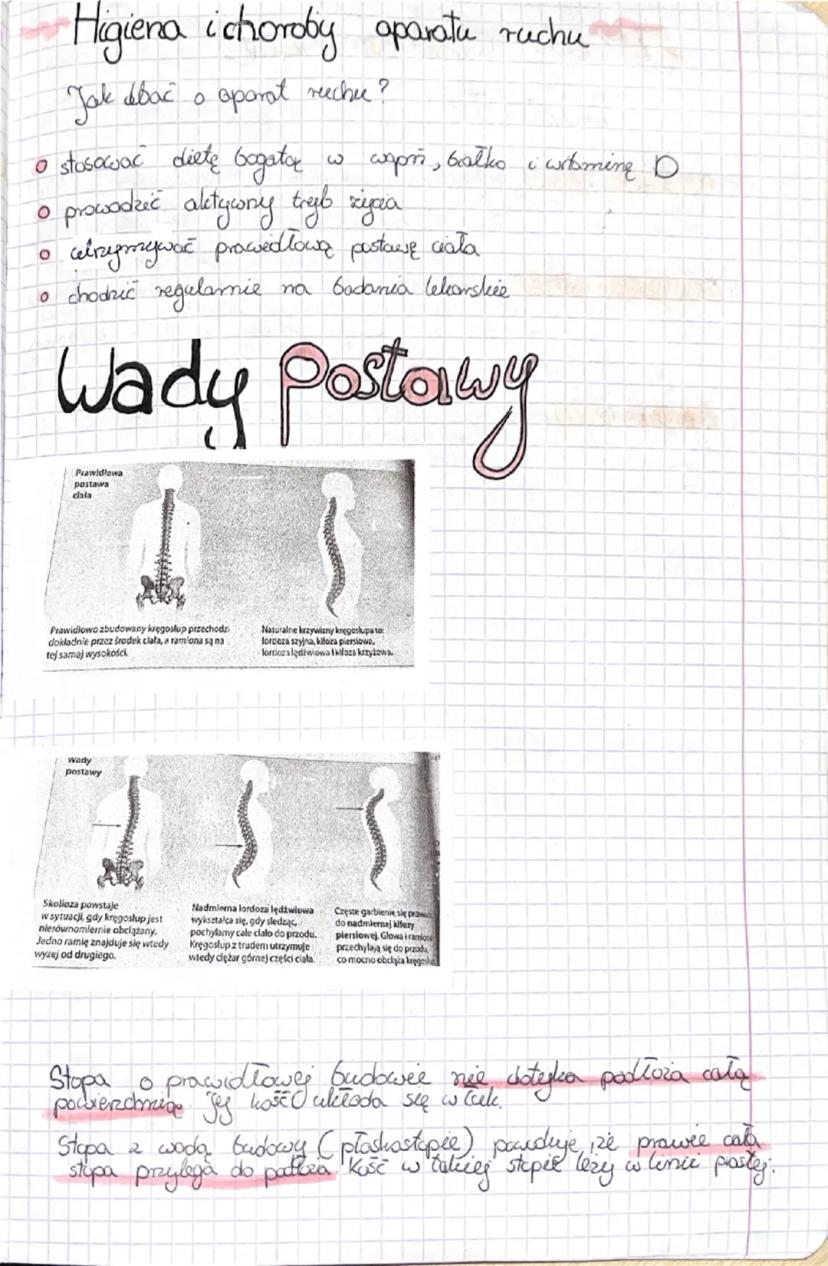 Higiena i choroby aparatu ruchu
Jak dbać o aparat ruchu?
stosować dietę bogatą w wapń, białko i witaminę D
prowadzić aktywny tryb życia
utrzymywać prawidłową postawę ciała
chodzić regularnie na badania lekarskie
Wady Postawy
Prawidłowa
postawa
ciała
Prawidłowo zbudowany kręgosłup przechodzi
dokładnie przez środek ciała, a ramiona są na
tej samej wysokości.
Naturalne krzywizny kręgosłupa to:
lordoza szyjna, kifoza piersiowa,
lordoza lędźwiowa i kifoza krzyżowa.
Wady
postawy
Skolioza powstaje
w sytuacji, gdy kręgosłup jest
nierównomiernie obciążany.
Jedno ramię znajduje się wtedy
wyżej od drugiego.
Nadmierna lordoza lędźwiowa
wykształca się, gdy siedząc,
pochylamy całe ciało do przodu.
Kręgosłup z trudem utrzymuje
wtedy ciężar górnej części ciała.
Częste garbienie się
do nadmiernej kifozy
piersiowej. Głowa i ramiona
przechylają się do przodu,
co mocno obciąża
Stopa o prawidłowej budowie nie dotyka podłoża całą
powierzchnią. Jej kość układa się w łuk.
Stopa z wadą budowy (płaskostopie) powoduje, że prawie cała
stopa przylega do podłoża. Kość w takiej stopie leży w linie prostej.